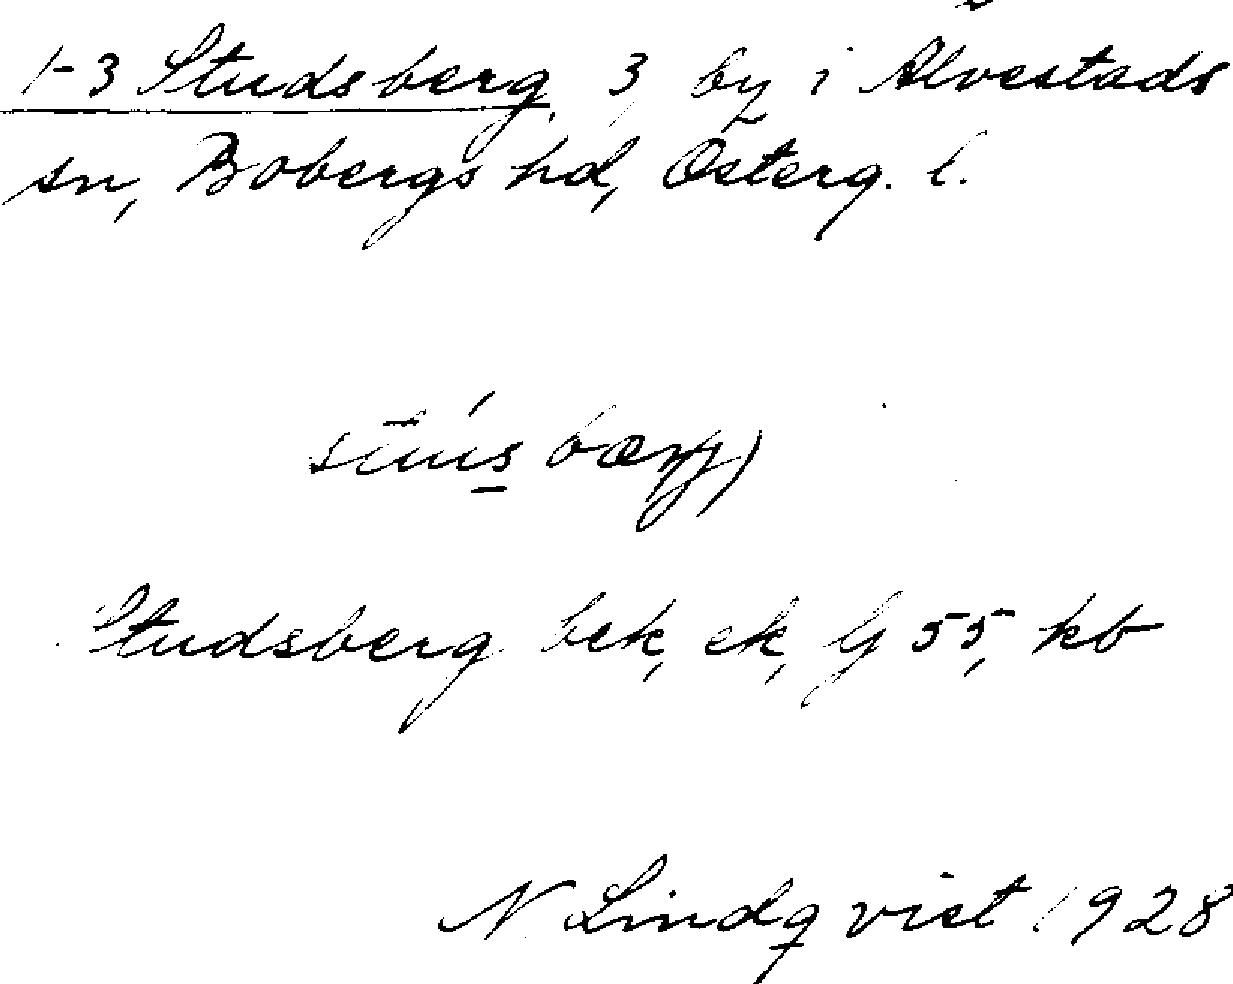 1-3 Studsberg, 3, by i Alvestads
sn, Bobergs hd, Österg. l.
Studsberg bek, ek, G 55, kb
N Lindqvist 1928